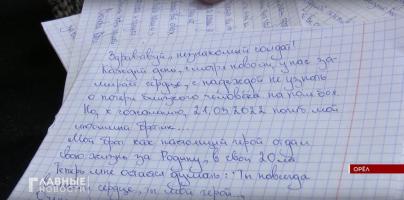 Здравствуй, незнакомый солдат!
Каждый день, смотря новости, у нас за-
мирает сердце, с надеждой не узнать
о потери близкого человека на поле боя.
Но, к сожалению, 21.09.2022 погиб мой
любимый братик...
Мой брат как настоящий герой отдал
свою жизнь за Родину, в свои 20 лет.
Теперь мне остаётся думать: "Ты навсегда
в сердце, ты мой герой
ГЛАВНЫЕ
НОВОСТИ
ОРЁЛ